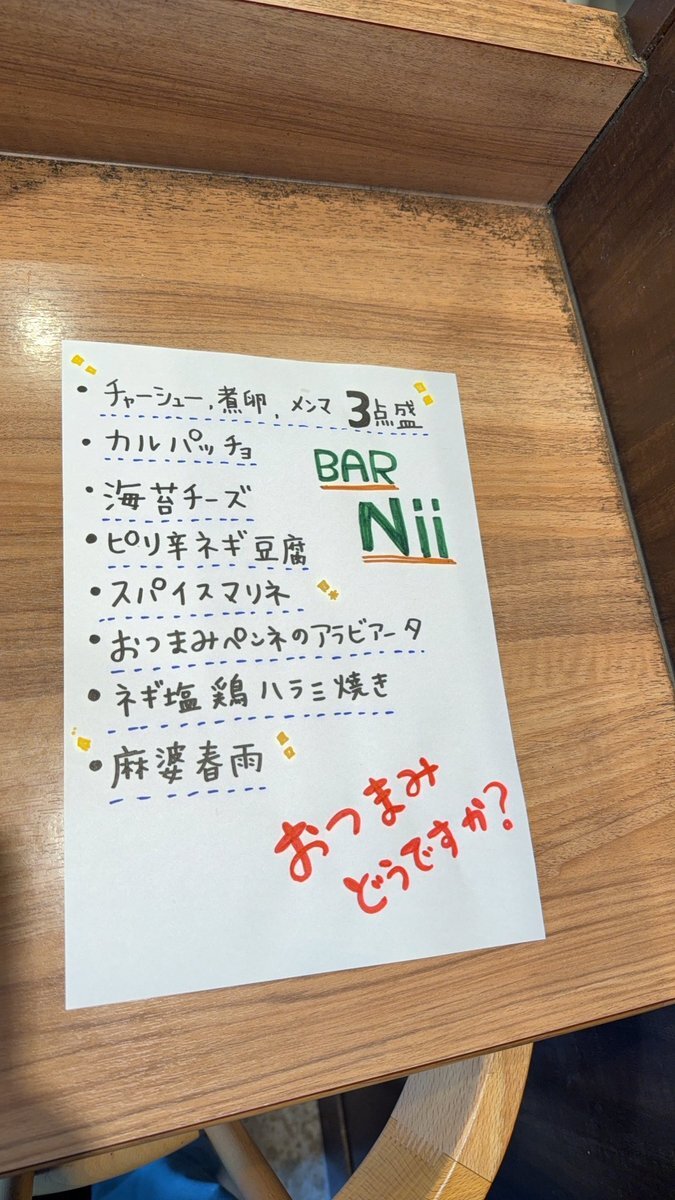 ・チャーシュー,煮卵,メンマ 3点盛
・カルパッチョ
BAR
・海苔チーズ
Nii
・ピリ辛ネギ豆腐
・スパイスマリネ
・おつまみペンネのアラビアータ
・ネギ塩鶏ハラミ焼き
・麻婆春雨
おつまみ
どうですか?